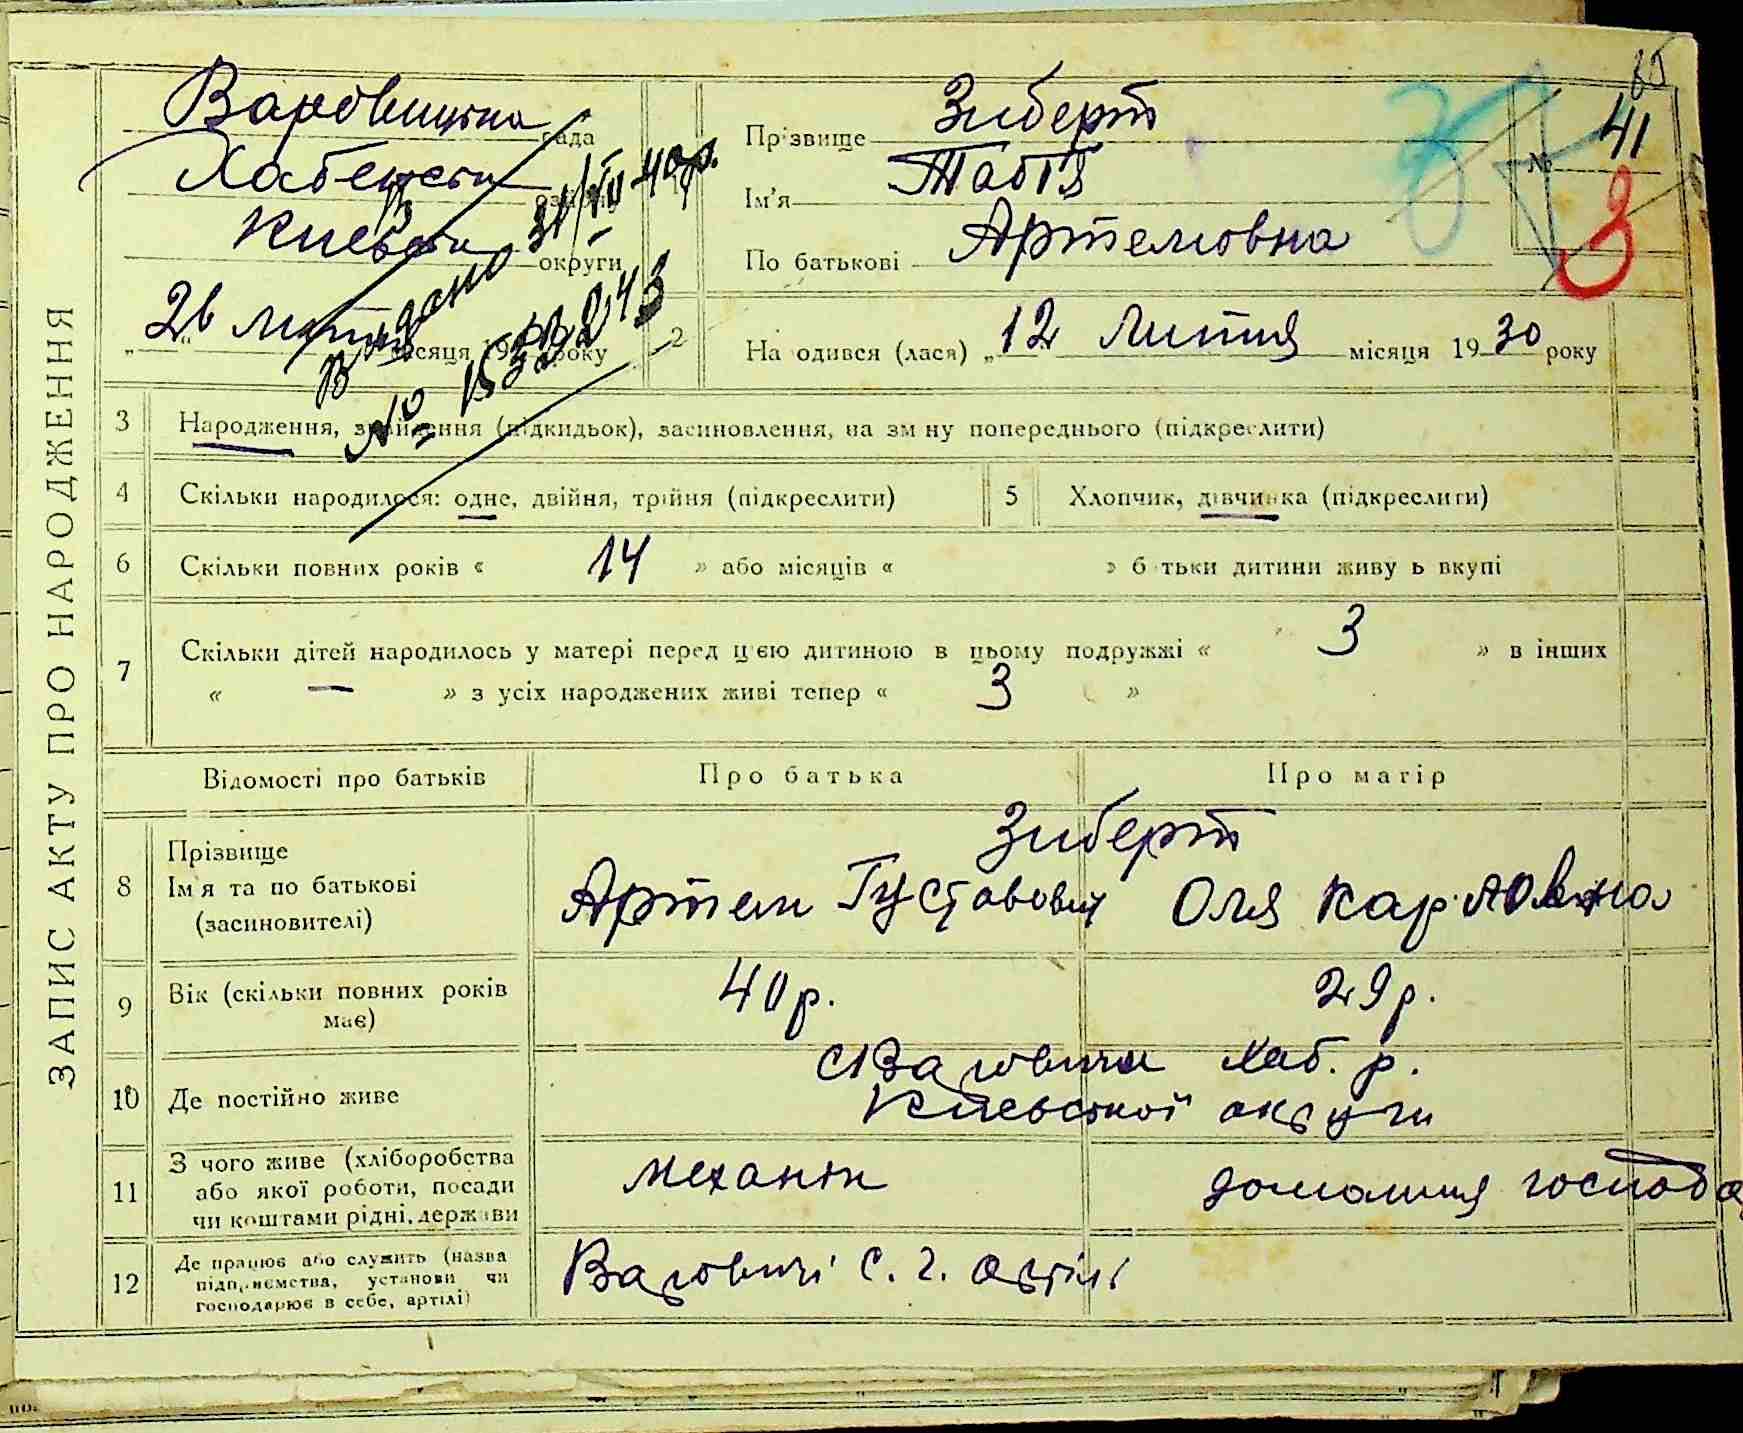 85
ЗАПИС АКТУ ПРО НАРОДЖЕННЯ
Варовицька рада
Хабенськ
Київськ округи
26 Липня місяця 19 року
Видано 31/IV 40р.
№
№ 41
3
Прізвище Зиберт
Ім'я Табія
По батькові Артемовна
2 Народився (лася) „12 Липня місяця 1930 року
3 Народження, знайдення (підкидьок), засиновлення, на зміну попереднього (підкреслити)
4 Скільки народилося: одне, двійня, трійня (підкреслити)
5 Хлопчик, дівчинка (підкреслити)
6 Скільки повних років « 14 » або місяців « » батьки дитини живуть вкупі
7 Скільки дітей народилось у матері перед цією дитиною в цьому подружжі « 3 » в інших
« — » з усіх народжених живі тепер « 3 »
Відомості про батьків Про батька Про матір
8 Прізвище
Ім'я та по батькові
(засиновителі)
Зиберт
Артем Густавович Оля Карловна
9 Вік (скільки повних років має)
40р. 29р.
10 Де постійно живе
Хаб. р.
Київської округи
11 З чого живе (хліборобства
або якої роботи, посади
чи коштами рідні, держави
механік домашня господа
12 Де працює або служить (назва
підприємства, установи чи
господарює в себе, артілі)
Варовичі С. г. артіль